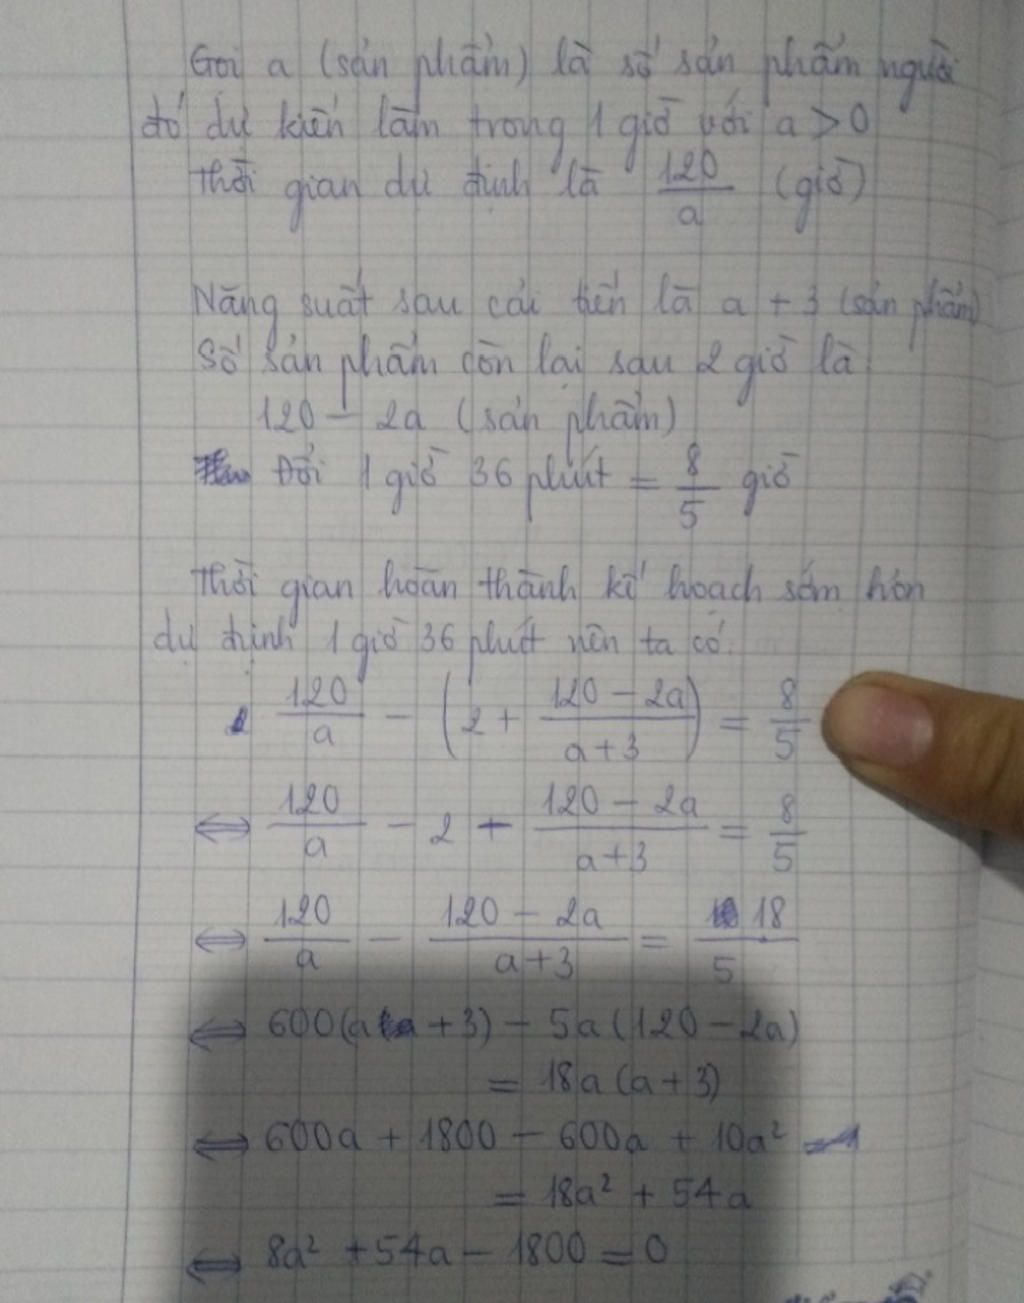 Gọi a (sản phẩm) là số sản phẩm người
đó dự kiến làm trong 1 giờ với a > 0
Thời gian dự định là 120/a (giờ)
Năng suất sau cải tiến là a + 3 (sản phẩm)
Số sản phẩm còn lại sau 2 giờ là
120 - 2a (sản phẩm)
Đổi 1 giờ 36 phút = 8/5 giờ
Thời gian hoàn thành kế hoạch sớm hơn
dự định 1 giờ 36 phút nên ta có:
120/a - (2 + (120 - 2a)/(a+3)) = 8/5
⇔ 120/a - 2 - (120 - 2a)/(a+3) = 8/5
⇔ 120/a - (120 - 2a)/(a+3) = 18/5
⇔ 600(a + 3) - 5a(120 - 2a)
= 18a(a + 3)
⇔ 600a + 1800 - 600a + 10a²
= 18a² + 54a
⇔ 8a² + 54a - 1800 = 0